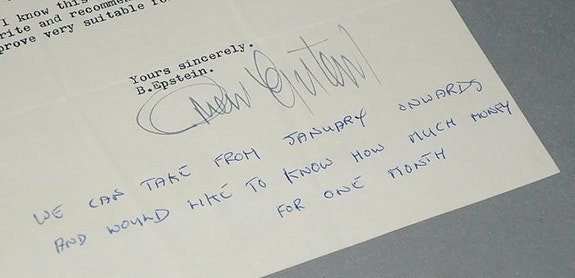 I know this
rite and recomme
prove very suitable fo
Yours sincerely.
B.Epstein.
WE CAN TAKE FROM JANUARY ONWARDS
AND WOULD LIKE TO KNOW HOW MUCH MONEY
FOR ONE MONTH